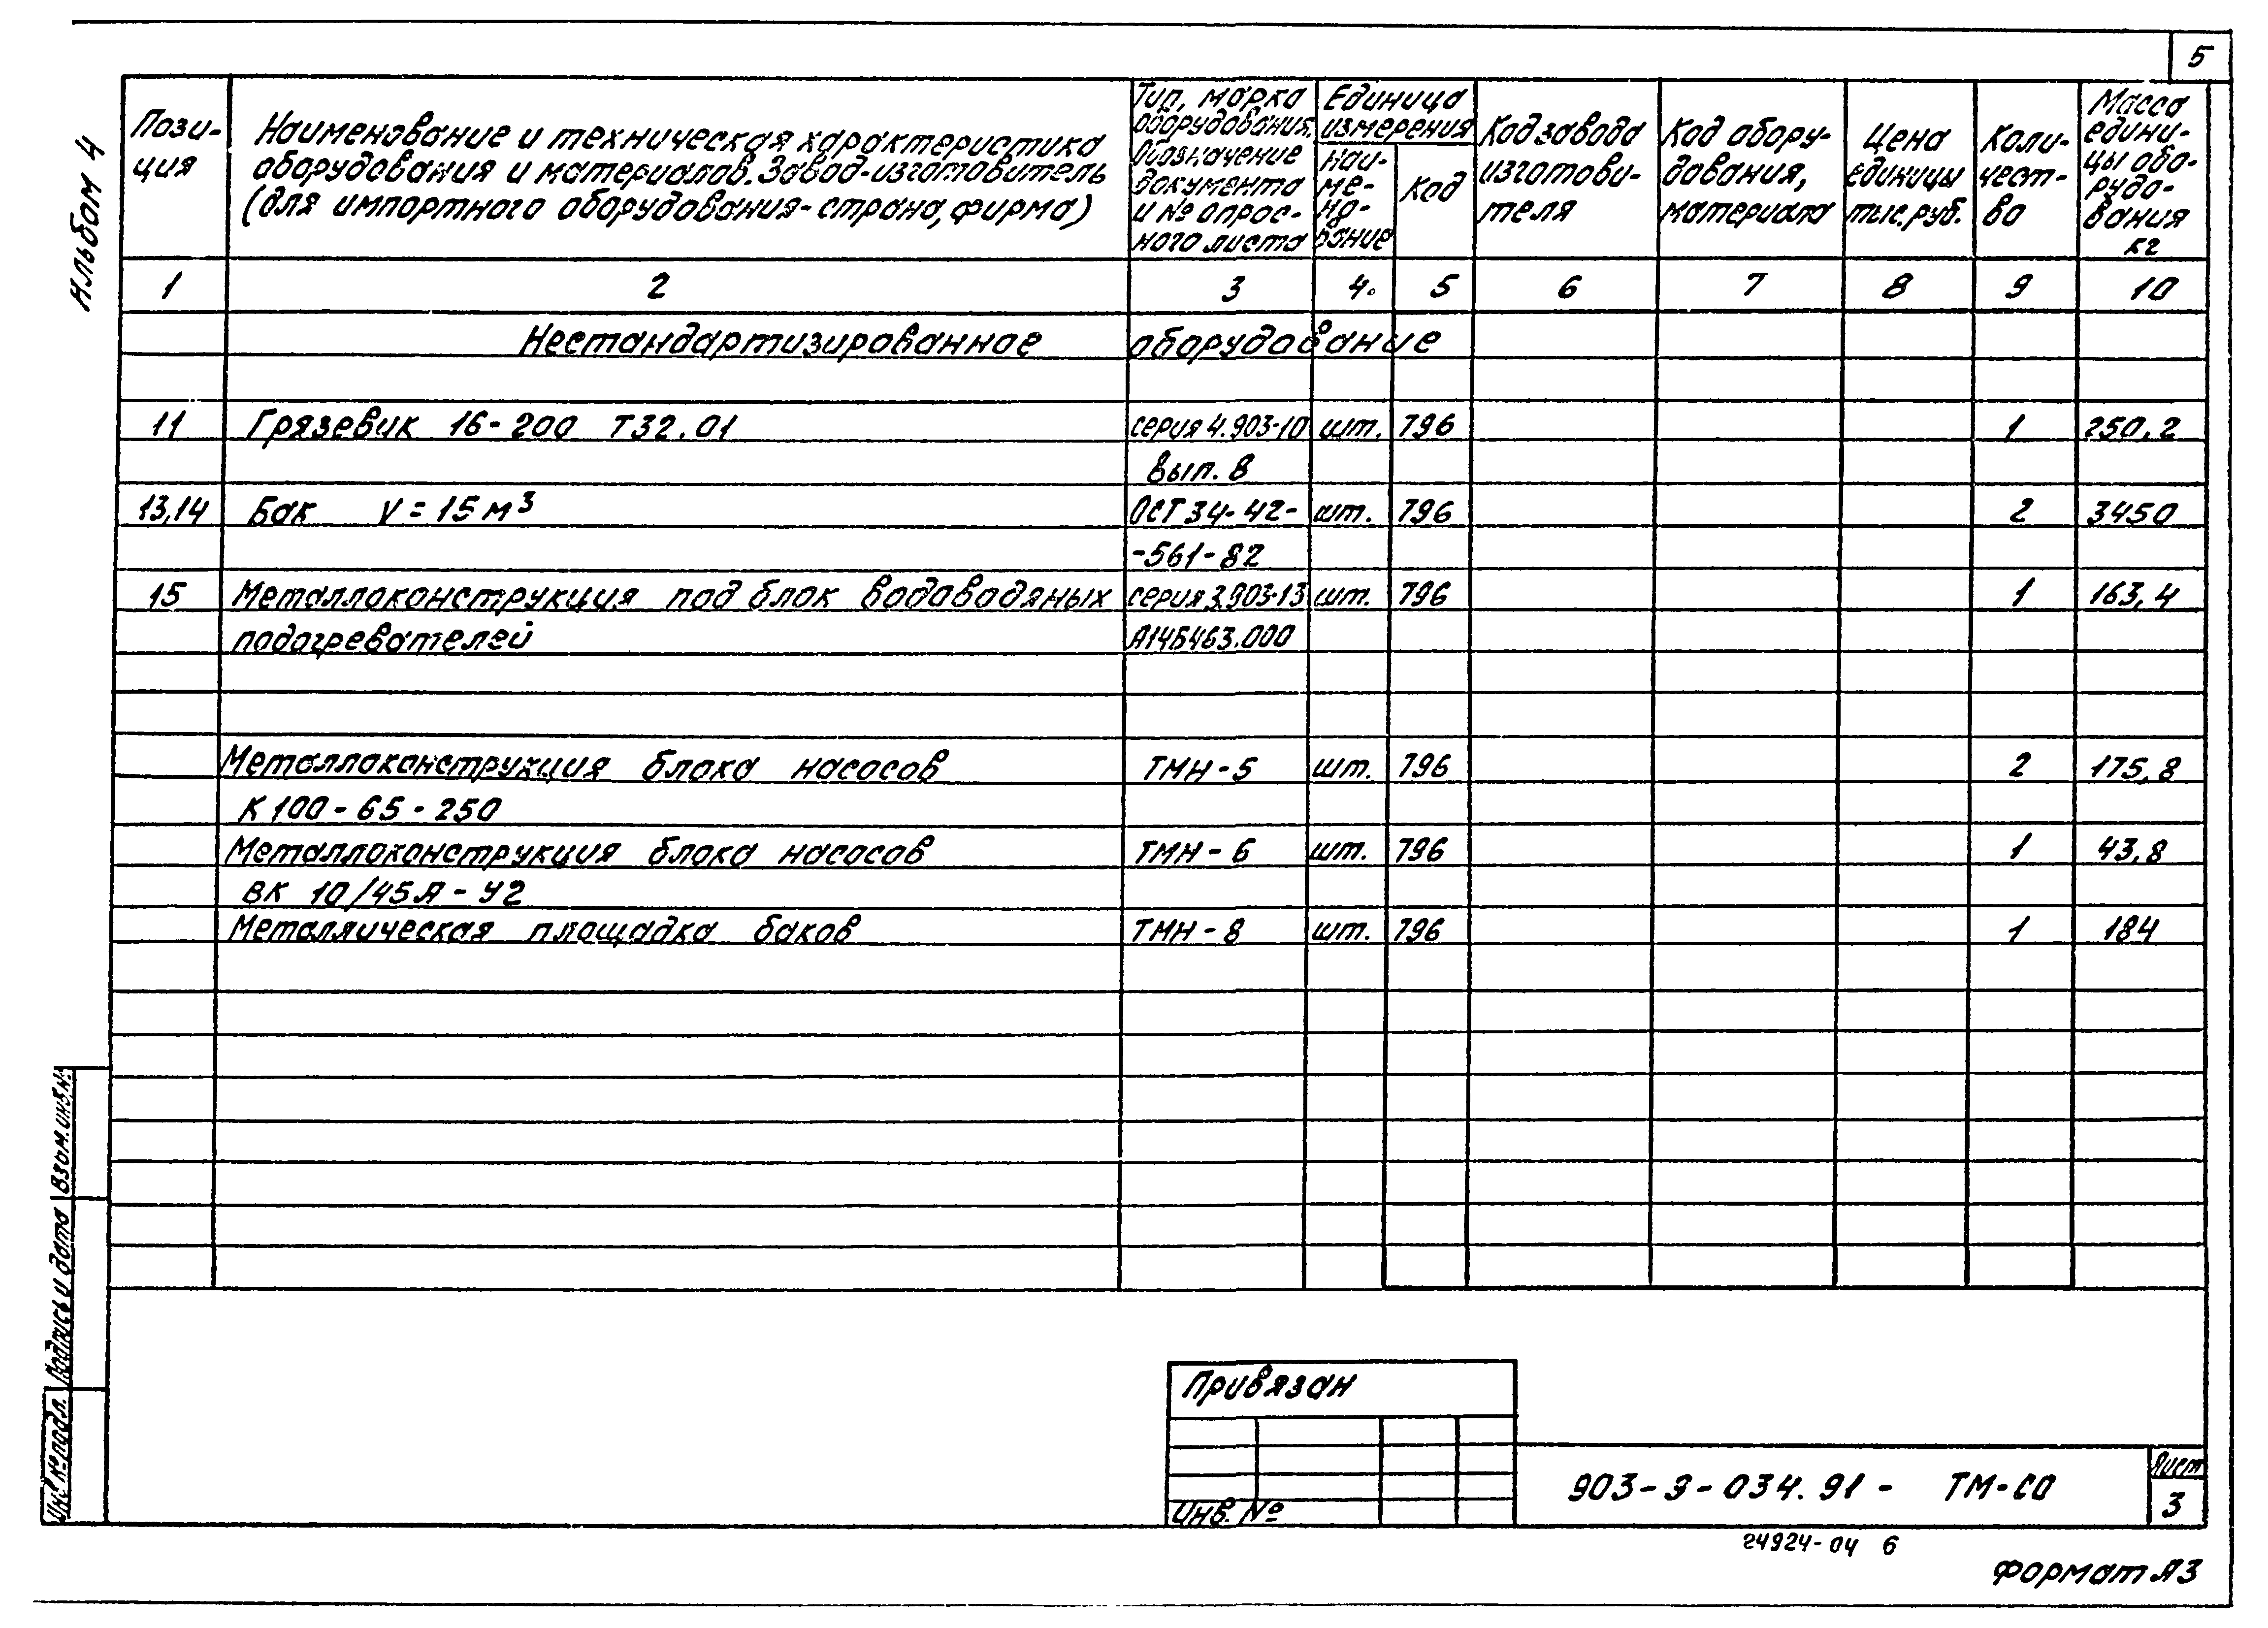 5
Альбом 4
Пози-
ция
Наименование и техническая характеристика
оборудования и материалов. Завод-изготовитель
(для импортного оборудования-страна, фирма)
Тип, марка
оборудования.
Обозначение
документа
и № опрос-
ного листа
Единица
измерения
Наи-
ме-
но-
вание
Код
Код завода
изготови-
теля
Код обору-
дования,
материала
Цена
единицы
тыс.руб.
Коли-
чест-
во
Масса
едини-
цы обо-
рудо-
вания
кг
1 2 3 4. 5 6 7 8 9 10
Нестандартизированное оборудование
11 Грязевик 16-200 Т32.01 серия 4.903-10 шт. 796 1 250,2
вып. 8
13,14 Бак V = 15 м³ ОСТ 34-42- шт. 796 2 3450
-561-82
15 Металлоконструкция под блок водоводяных серия 3.903-13 шт. 796 1 163,4
подогревателей А14Б463.000
Металлоконструкция блока насосов ТМН-5 шт. 796 2 175,8
К 100-65-250
Металлоконструкция блока насосов ТМН-6 шт. 796 1 43,8
ВК 10/45А-У2
Металлическая площадка баков ТМН-8 шт. 796 1 184
Взам. инв. №
Подпись и дата
Инв № подл.
Привязан
Инв. №
903-9-034.91 - ТМ-СО
Лист
3
24924-04 6
Формат А3